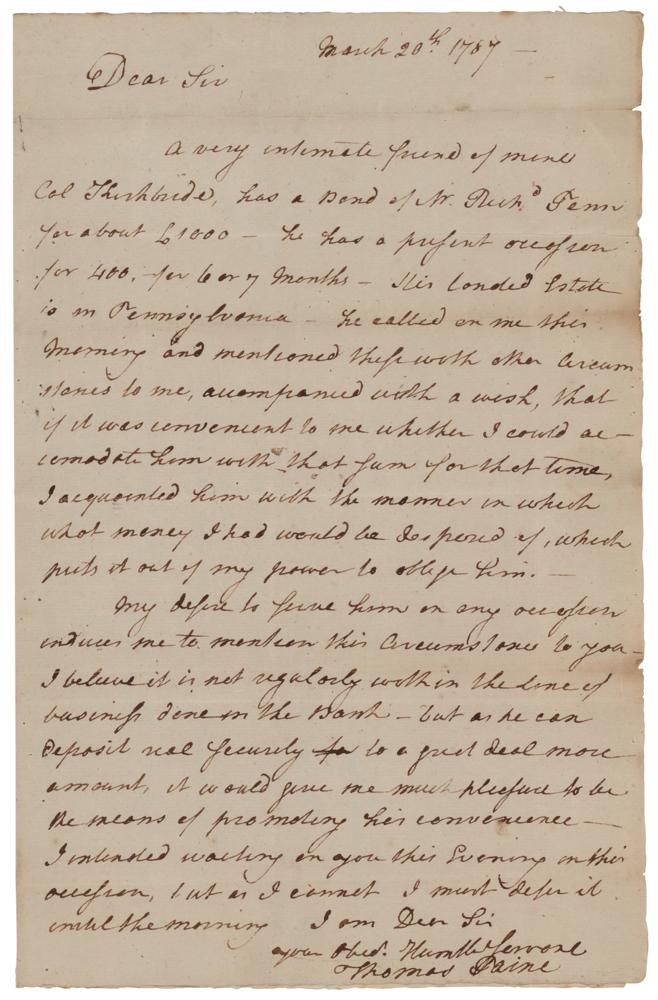 March 20th 1787 —
Dear Sir
A very intimate friend of mine
Col Kirkbride, has a Bond of Mr. Richd Penn
for about £1000 — he has a present occasion
for 400. for 6 or 7 Months — His landed Estate
is in Pennsylvania — he called on me this
Morning and mentioned these with other Circum
stances to me, accompanied with a wish, that
if it was convenient to me whether I could ac-
comodate him with that sum for that time,
I acquainted him with the manner in which
what money I had would be disposed of, which
puts it out of my power to oblige him. —
My desire to serve him on any occasion
induces me to mention this Circumstance to you —
I believe it is not regularly within the line of
business done in the Bank — but as he can
deposit real security to a great deal more
amount, it would give me much pleasure to be
the means of promoting his convenience —
I intended waiting on you this Evening on this
occasion, but as I cannot I must defer it
until the morning I am Dear Sir
your Obedt. Humble Servant
Thomas Paine